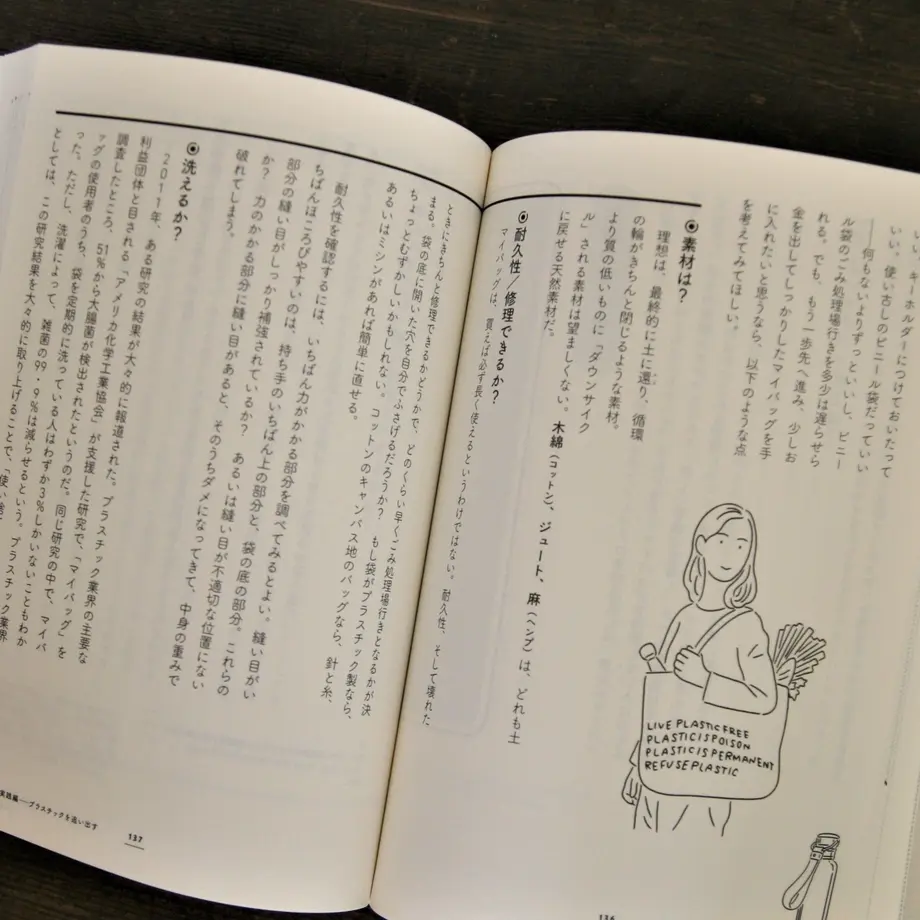 い、キーホルダーにつけておいたって
いい。使い古しのビニール袋だっていい
何もないよりずっといいし、ビニー
ル袋のごみ処理場行きを多少は遅らせら
れる。でも、もう一歩先へ進み、少しお
金を出してしっかりしたマイバッグを手
に入れたいと思うなら、以下のような点
を考えてみてほしい。
◉素材は?
理想は、最終的に土に還り、循環
の輪がきちんと閉じるような素材。
より質の低いものに「ダウンサイク
ル」される素材は望ましくない。木綿(コットン)、ジュート、麻(ヘンプ)は、どれも土
に戻せる天然素材だ。
◉耐久性/修理できるか?
マイバッグは、買えば必ず長く使えるというわけではない。耐久性、そして壊れた
LIVE PLASTIC FREE
PLASTIC IS POISON
PLASTIC IS PERMANENT
REFUSE PLASTIC
136
ときにきちんと修理できるかどうかで、どのくらい早くごみ処理場行きとなるかが決
まる。袋の底に開いた穴を自分でふさげるだろうか? もし袋がプラスチック製なら、
ちょっとむずかしいかもしれない。コットンのキャンバス地のバッグなら、針と糸、
あるいはミシンがあれば簡単に直せる。
耐久性を確認するには、いちばん力がかかる部分を調べてみるとよい。縫い目がい
ちばんほころびやすいのは、持ち手のいちばん上の部分と、袋の底の部分。これらの
部分の縫い目がしっかり補強されているか? あるいは縫い目が不適切な位置にない
か? 力のかかる部分に縫い目があると、そのうちダメになってきて、中身の重みで
破れてしまう。
◉洗えるか?
2011年、ある研究の結果が大々的に報道された。プラスチック業界の主要な
利益団体と目される「アメリカ化学工業協会」が支援した研究で、「マイバッグ」を
調査したところ、51%から大腸菌が検出されたというのだ。同じ研究の中で、マイバ
ッグの使用者のうち、袋を定期的に洗っている人はわずか3%しかいないこともわか
った。ただし、洗濯によって、雑菌の99・9%は減らせるという。プラスチック業界
としては、この研究結果を大々的に取り上げることで、「使い捨
実践編――プラスチックを追い出す
137